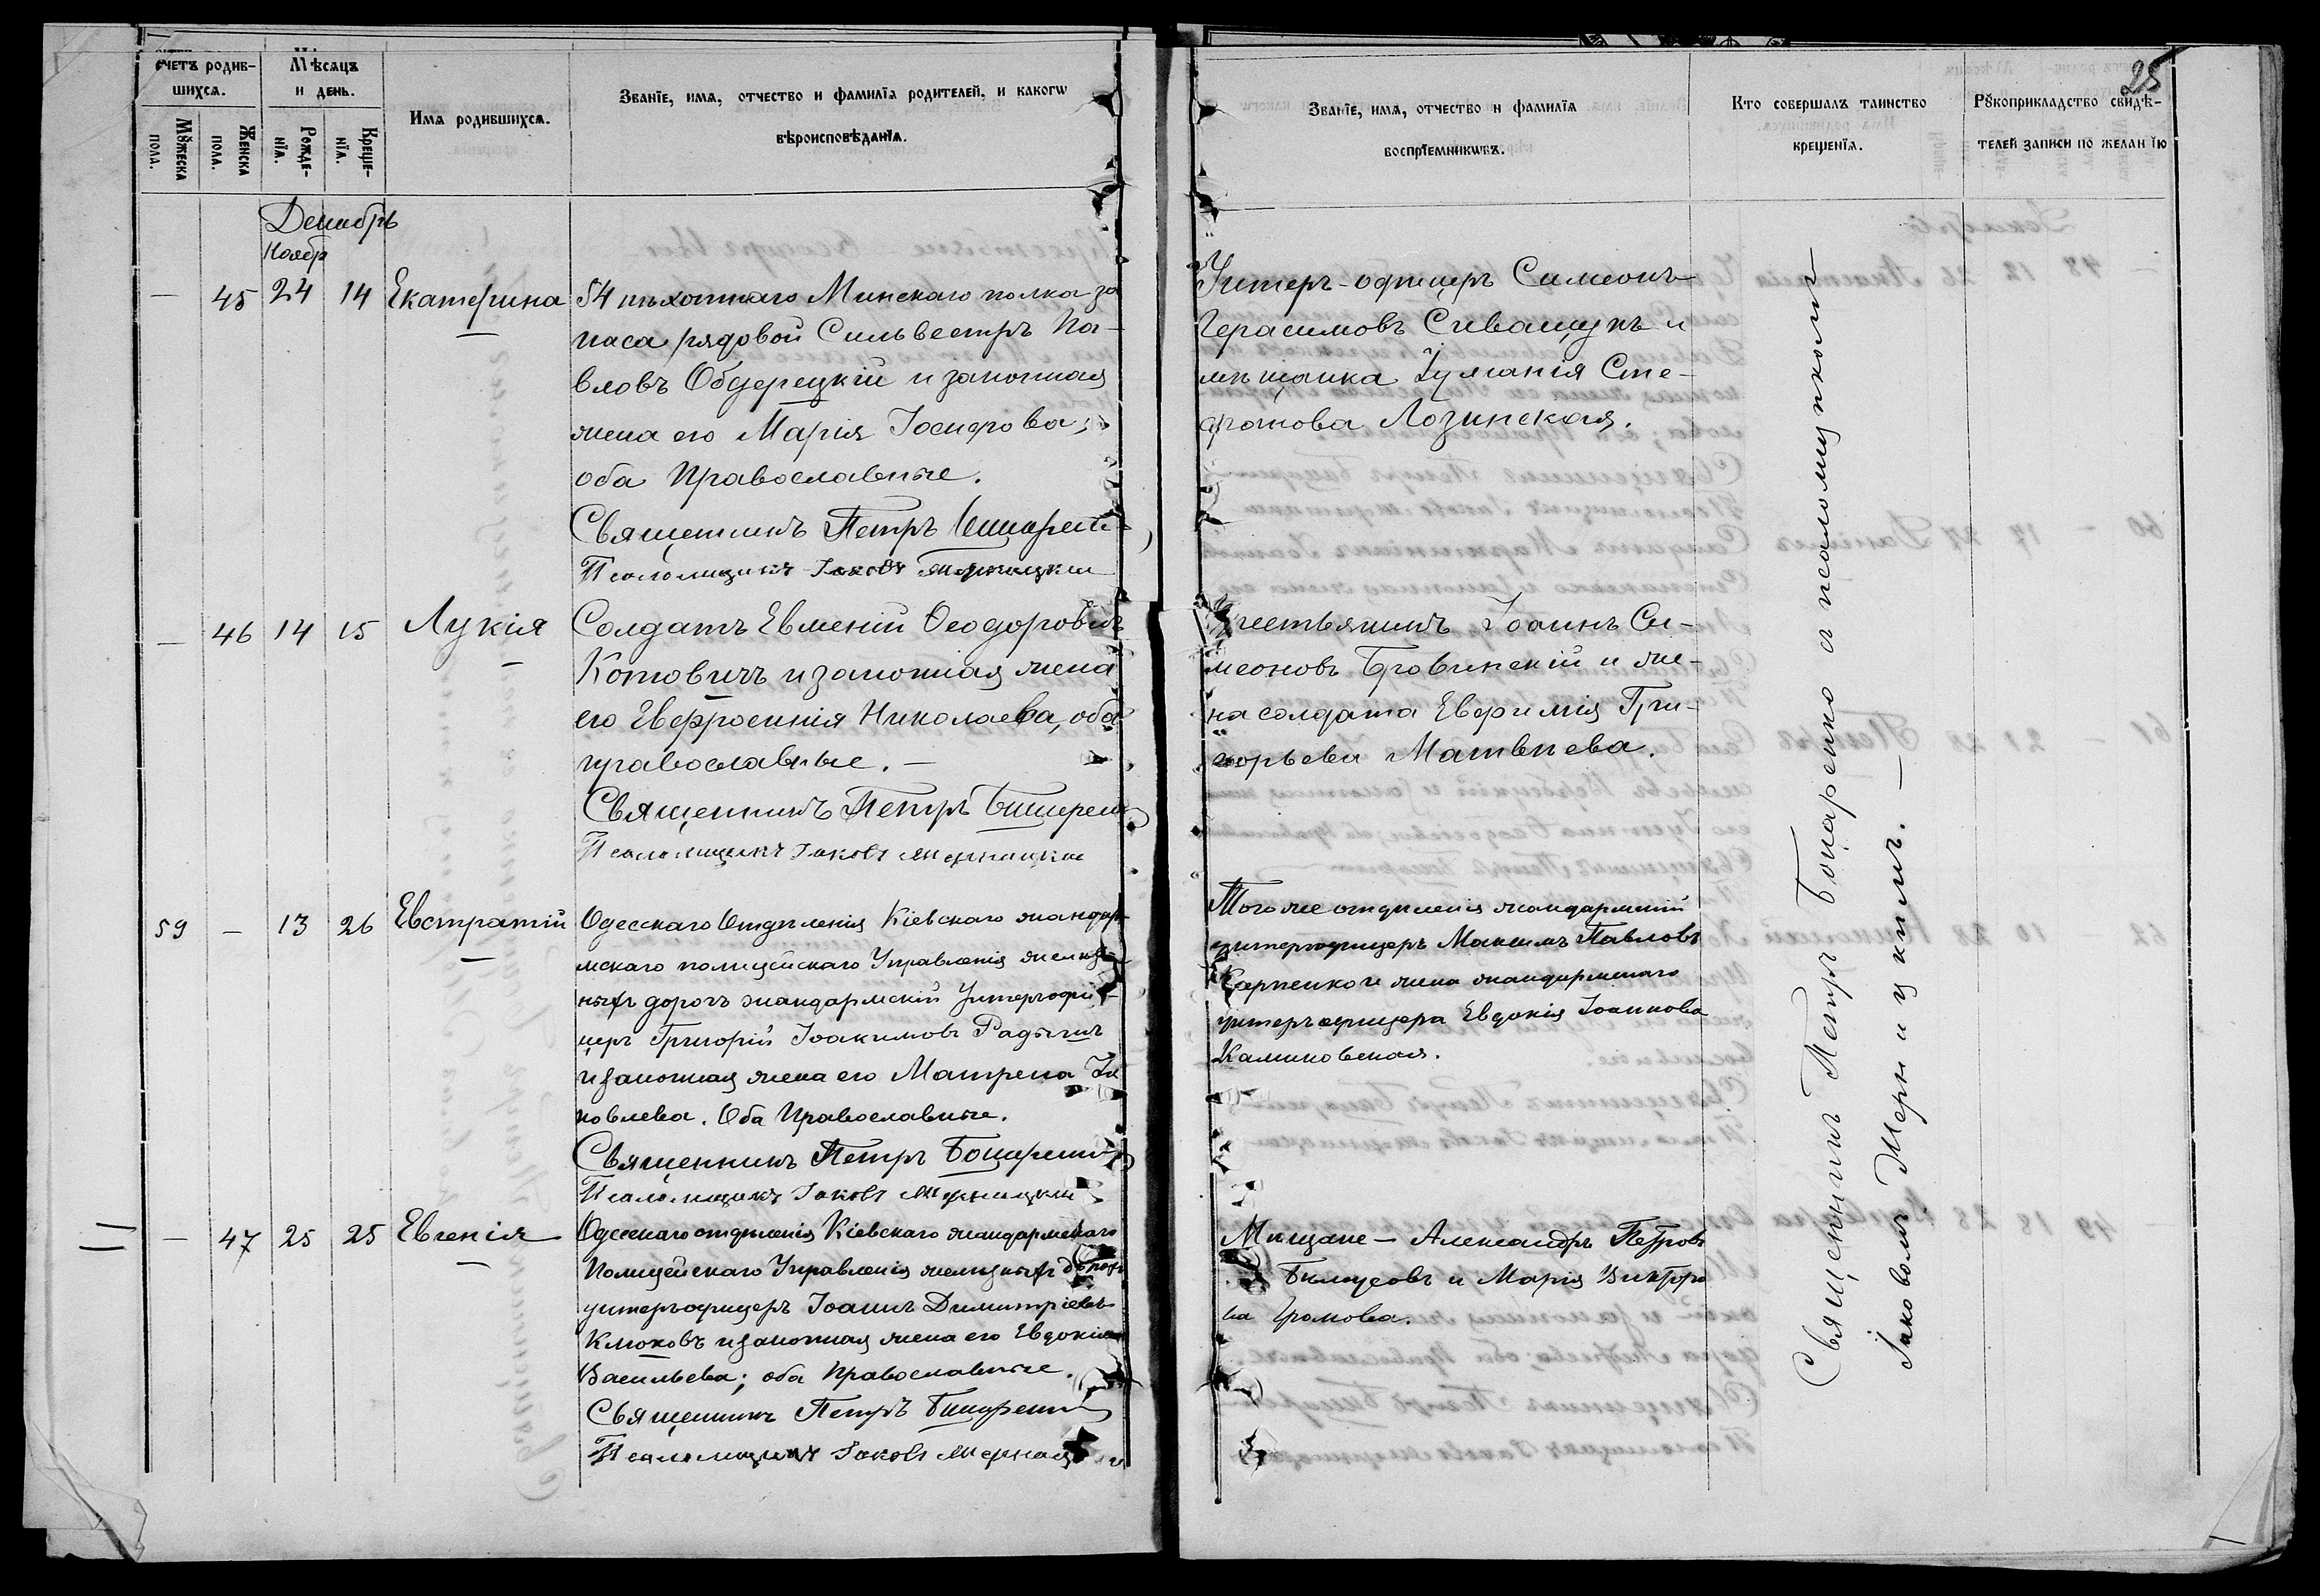 счетъ родив-
шихсѧ.
Мѣсѧцъ
и день.
Мꙋжеска
пола.
Женска
пола.
Рожде-
нїѧ.
Креще-
нїѧ.
Имѧ родившихсѧ.
Званїе, имѧ, отчество и фамилїѧ родителей, и какогѡ
вѣроисповѣданїѧ.
Декабрь
Ноябр
— 45 24 14 Екатерина
54 пѣхотнаго Минскаго полка за
паса рядовой Сильвестръ Па-
вловъ Обдерецкій и законная
жена его Марія Іосифова,
оба Православные.
Священникъ Петръ
Псаломщикъ Іаковъ Мерницкій
— 46 14 15 Лукія
Солдатъ Евменій Ѳеодоровъ
Котовичъ и законная жена
его Евфросинія Николаева, оба
православные. —
Священникъ Петръ
Псаломщикъ Іаковъ Мерницкій
59 — 13 26 Евстратій
Одесскаго Отдѣленія Кіевскаго жандар-
мскаго полицейскаго Управленія желѣз-
ныхъ дорогъ жандармскій Унтерофи-
церъ Григорій Іоакимовъ
и законная жена его Матрена Іа
ковлева. Оба Православные.
Священникъ Петръ
Псаломщикъ Іаковъ Мерницкій
— 47 25 25 Евгенія
Одесскаго отдѣленія Кіевскаго жандармскаго
Полицейскаго Управленія желѣзныхъ дорогъ
унтеръофицеръ Іоаннъ Димитріевъ
Клюковъ и законная жена его Евдокія
Васильева; оба Православные.
Священникъ Петръ
Псаломщикъ Іаковъ
25
Званїе, имѧ, отчество и фамилїѧ
воспрїемникѡвъ.
Кто совершалъ таинство
крещенїѧ.
Рꙋкоприкладство свидѣ-
телей записи по желанїю
Унтеръ-офицеръ Симеонъ
Герасимовъ Сиващукъ и
мѣщанка Іуліанія Сте-
фанова Лозинская.
Крестьянинъ Іоаннъ Си-
меоновъ Бровинскій и же-
на солдата Евфимія Гри-
горьева Матвѣева.
Того же отдѣленія жандармскій
унтерофицеръ Максимъ Павловъ
Карпенко и жена жандармскаго
унтеръофицера Евдокія Іоаннова
Калиновская.
Мѣщане — Александръ Петровъ
Бѣлоусовъ и Марія
на Громова.
Священникъ Петръ Боцаренко с псаломщикомъ
Іаковомъ Мерницкимъ. —